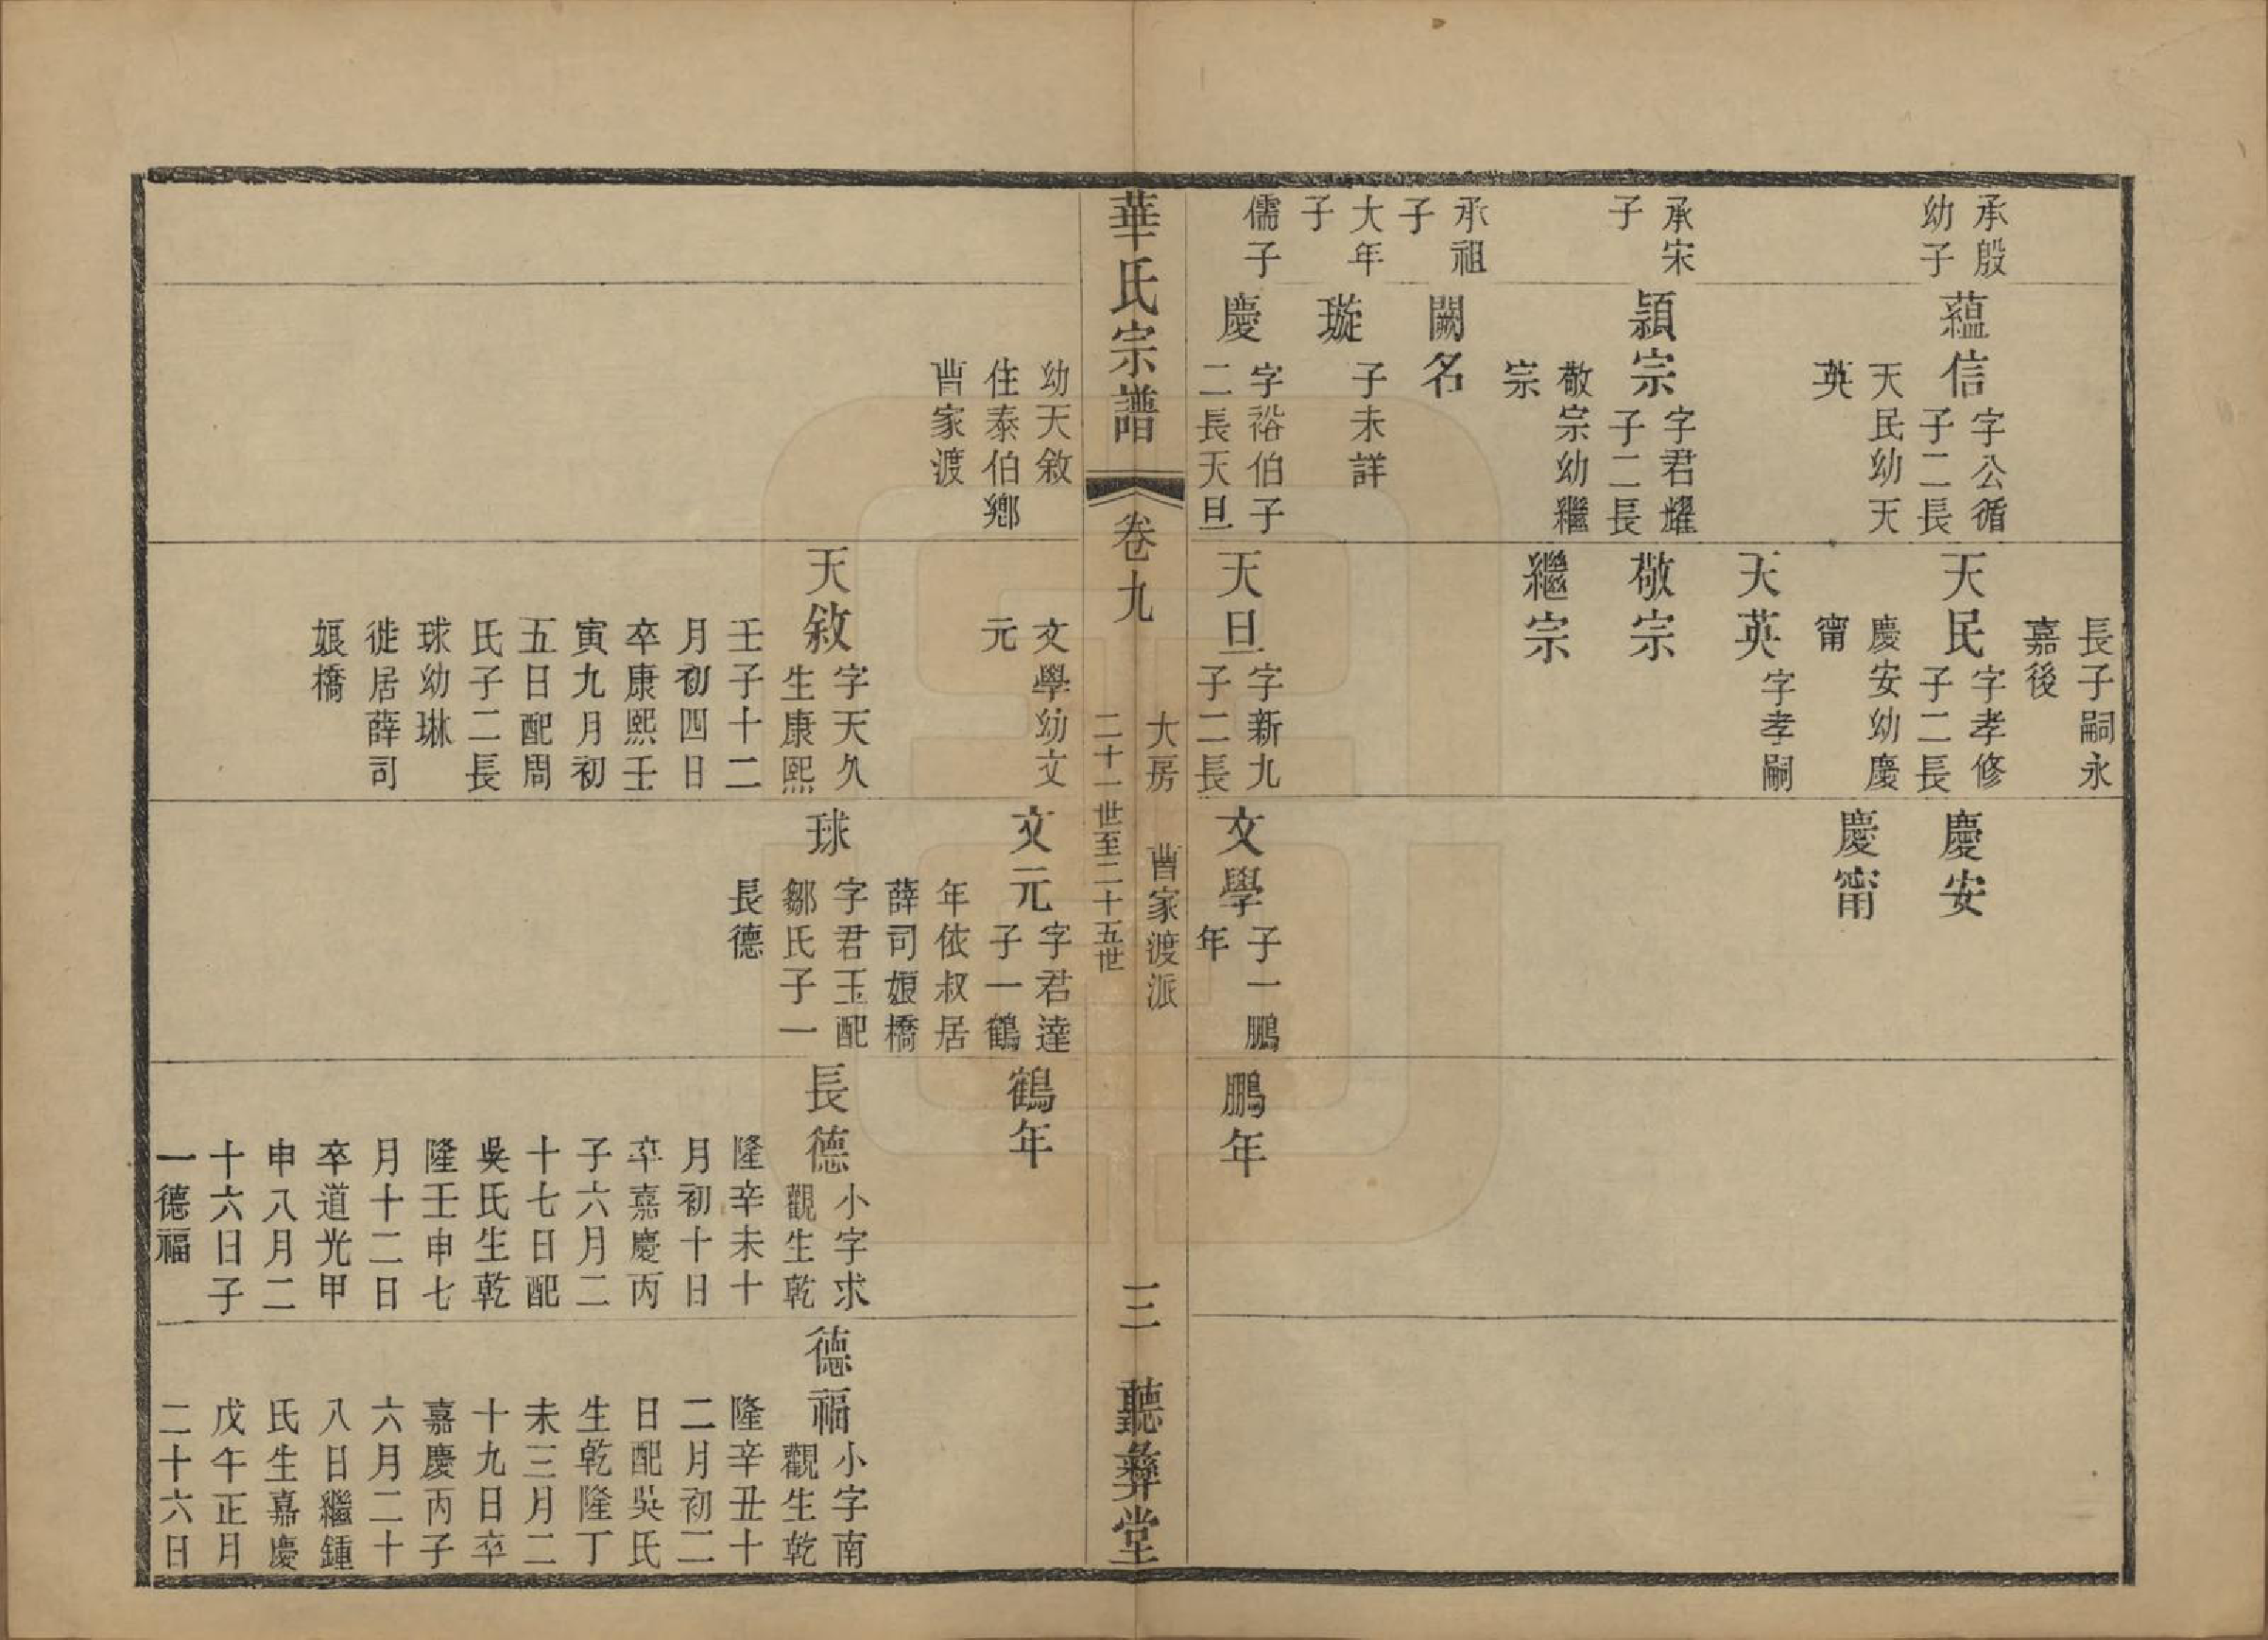 承殷
幼子
承宋
子
承祖
子
大年
子
儒子
蘊信
字公循
子二長
天民幼天
英
顯宗
字君耀
子二長
敬宗幼繼
宗
闕名
璇
子未詳
慶
字裕伯子
二長天旦
長子嗣永
嘉後
天民
字孝修
子二長
慶安幼慶
甯
天英
字孝嗣
敬宗
繼宗
天旦
字新九
子二長
慶安
慶甯
文學
子一鵬
年
鵬年
華氏宗譜
卷九
大房　曹家渡派
二十一世至二十五世
三
聽彝堂
幼天敘
住泰伯鄉
曹家渡
文學幼文
元
天敘
字天久
生康熙
壬子十二
月初四日
卒康熙壬
寅九月初
五日配周
氏子二長
球幼琳
徙居薛司
娘橋
文元
字君達
子一鶴
年依叔居
薛司娘橋
球
字君玉配
鄒氏子一
長德
鶴年
長德
小字求
觀生乾
隆辛未十
月初十日
卒嘉慶丙
子六月二
十七日配
吳氏生乾
隆壬申七
月十二日
卒道光甲
申八月二
十六日子
一德福
德福
小字南
觀生乾
隆辛丑十
二月初二
日配吳氏
生乾隆丁
未三月二
十九日卒
嘉慶丙子
六月二十
八日繼鍾
氏生嘉慶
戊午正月
二十六日